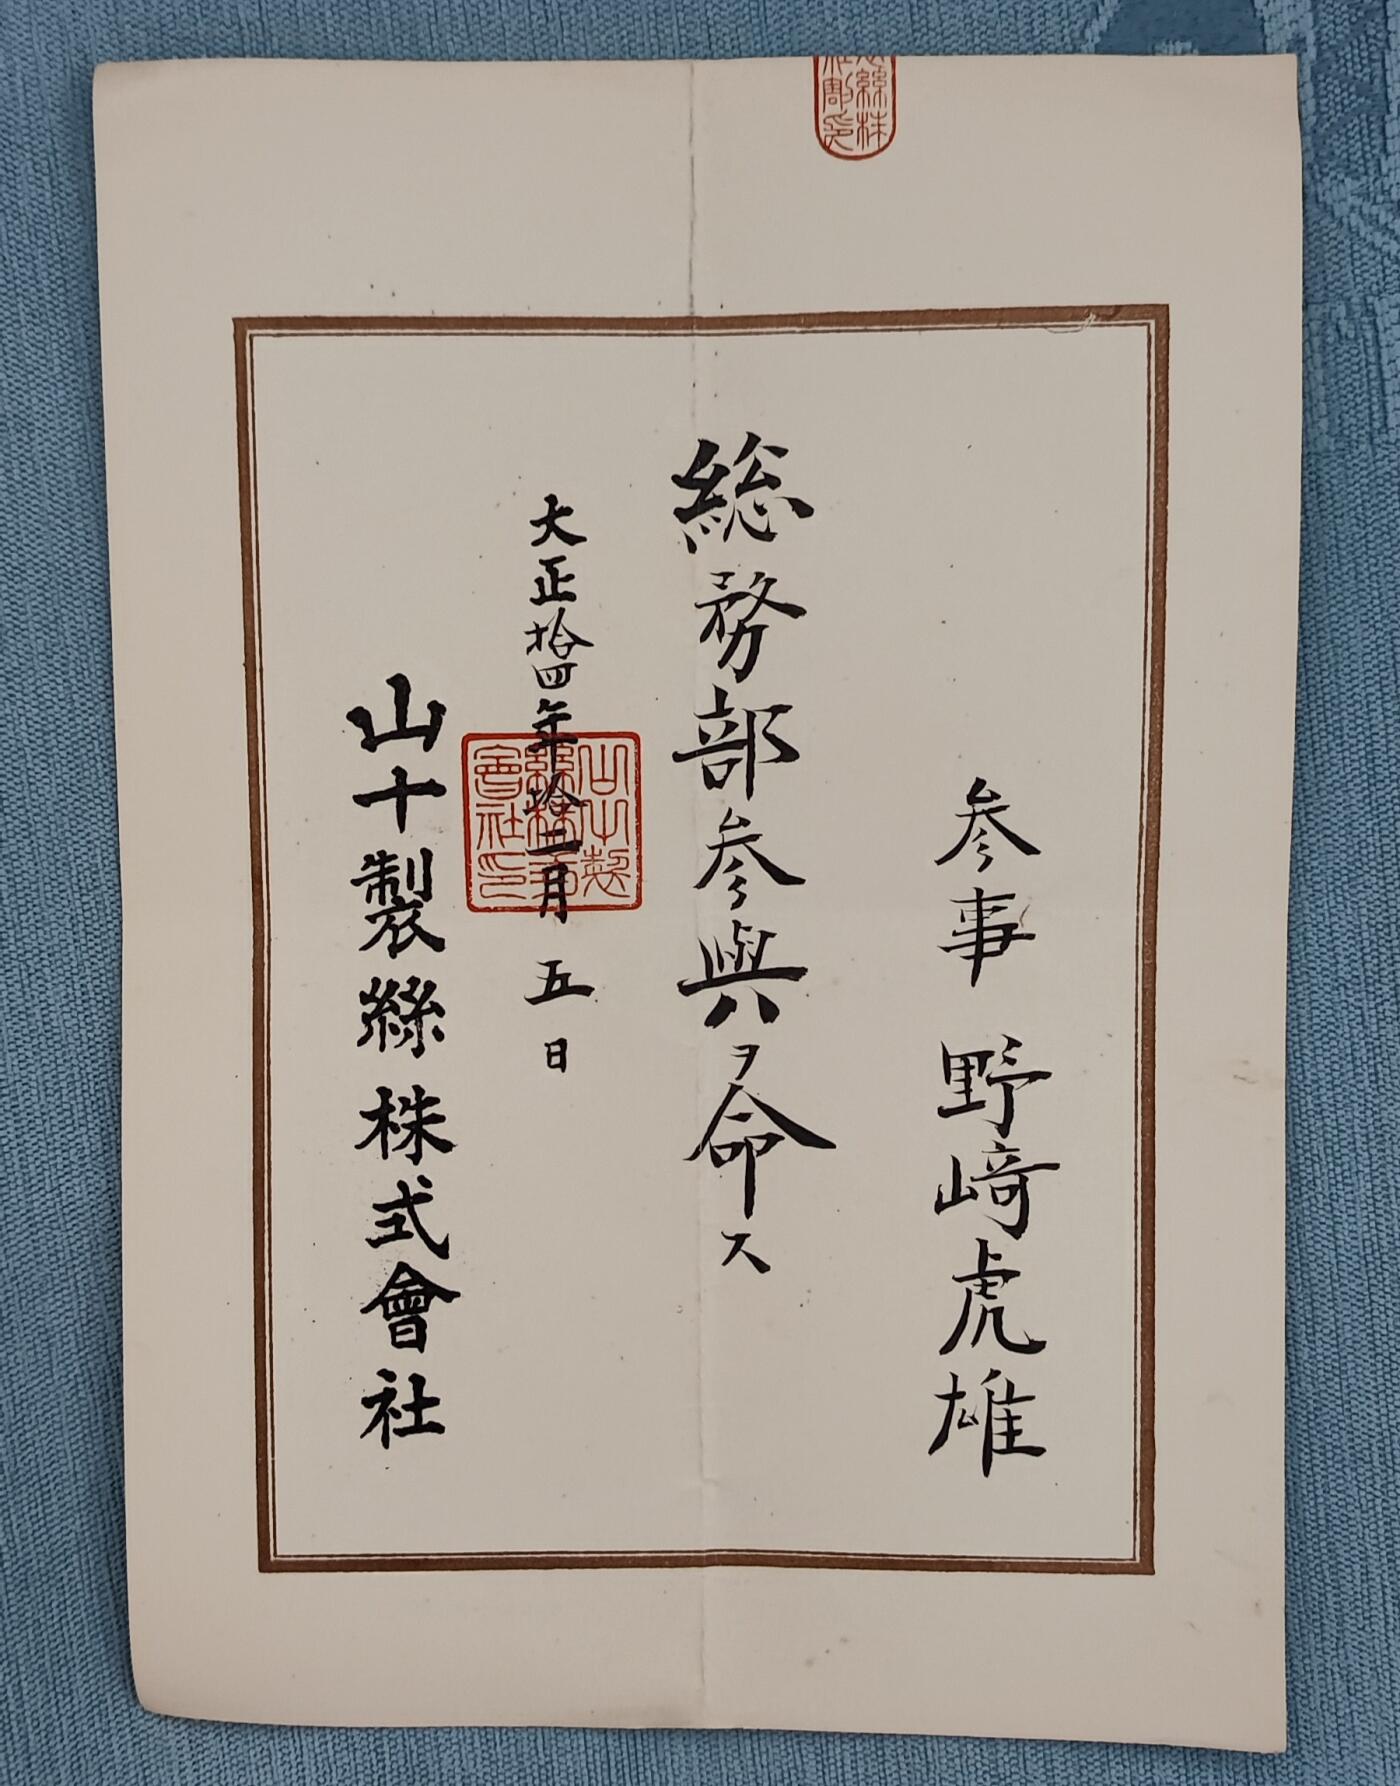 参事 野﨑虎雄
総務部参與ヲ命ス
大正拾四年拾二月五日
山十製絲株式會社
山十製
絲株式
會社印
絲株
割印